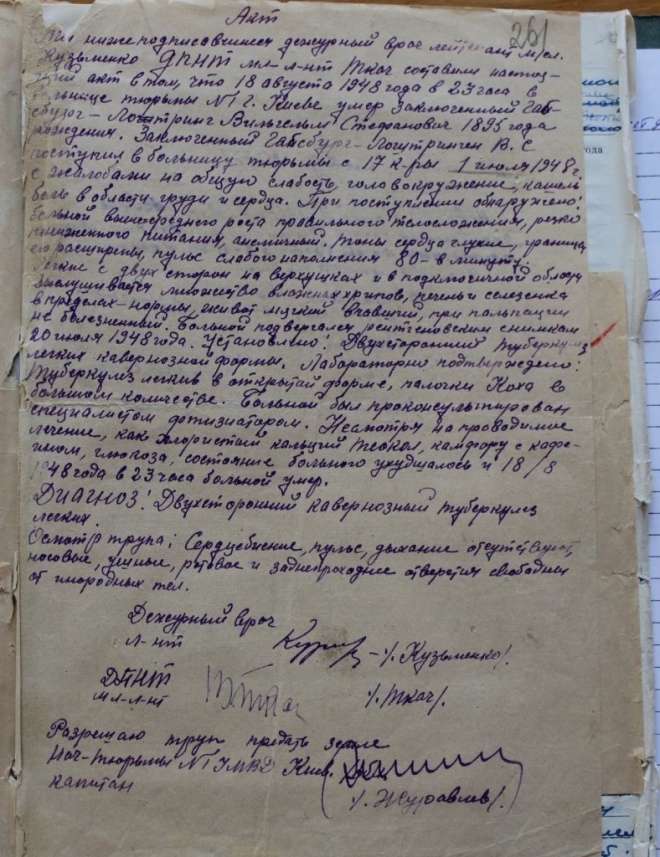 Акт
261
Мы нижеподписавшиеся дежурный врач лейтенант м/сл.
Кузьменко ДПНТ мл-л-нт Ткач составили настоя-
щий акт в том, что 18 августа 1948 года в 23 часа в
больнице тюрьмы №1 г. Киева умер Заключенный Габ-
сбург-Лотринг Вильгельм Стефанович 1895 года
рождения. Заключенный Габсбург-Лотринген В.С
поступил в больницу тюрьмы с 17 к-ры 1 июля 1948 г.
с жалобами на общую слабость, головокружение, кашель
боль в области груди и сердца. При поступлении обнаружено:
больной вышесреднего роста правильного телосложения, резко
пониженного питания, анемичный. Тоны сердца глухие, границы
его расширены, пульс слабого наполнения 80-в минуту.
Легкие с двух сторон на верхушках и в подключичной области
выслушивается множество влажных хрипов, печень и селезенка
в пределах-нормы, живот мягкий впавший, при пальпации
не болезненный. Больной подвергался рентгеновским снимкам
20 июля 1948 года. Установлено: Двухсторонний туберкулез
легких кавернозной формы. Лабораторно подтверждено:
Туберкулез легких в открытой форме, палочки Коха в
большом количестве. Больной был проконсультирован
специалистом фтизиатором. Несмотря на проводимое
лечение, как хлористый кальций тиокол, камфору с кофе-
ином, глюкоза, состояние больного ухудшалось и 18/8
1948 года в 23 часа больной умер.
Диагноз! Двухсторонний кавернозный туберкулез
легких.
Осмотр трупа: Сердцебиение, пульс, дыхание отсутствуют,
носовые, ушные, ротовое и заднепроходное отверстия свободны
от инородных тел.
Дежурный врач
л-нт
/. Кузьменко/.
ДПНТ
мл-л-нт
/. Ткач/.
Разрешаю труп предать земле
Нач-тюрьмы №1 УМВД Киев.
капитан
/. Журавлев/.
года